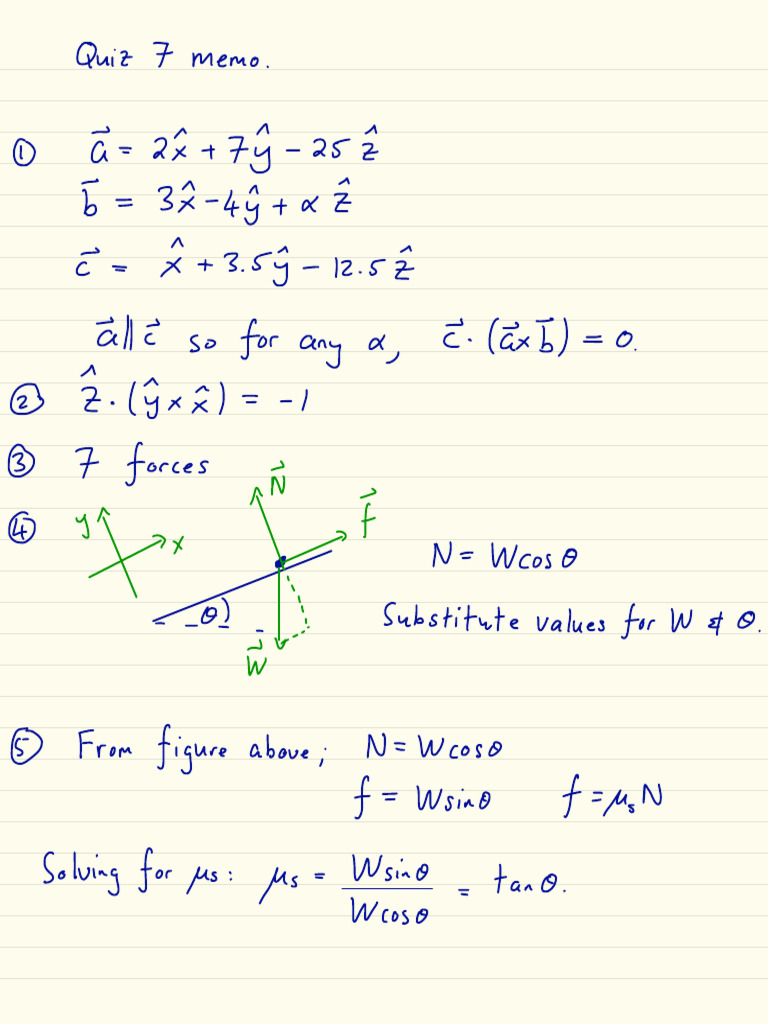 Quiz 7 memo.
① a⃗ = 2x̂ + 7ŷ − 25 ẑ
b⃗ = 3x̂ − 4ŷ + α ẑ
c⃗ = x̂ + 3.5ŷ − 12.5 ẑ
a⃗ ∥ c⃗ so for any α, c⃗ · (a⃗ × b⃗) = 0.
② ẑ · (ŷ × x̂) = −1
③ 7 forces
④ y x N⃗ f⃗ θ W⃗
N = W cos θ
Substitute values for W & θ.
⑤ From figure above; N = W cos θ
f = W sin θ f = μₛ N
Solving for μs: μs = W sin θ / W cos θ = tan θ.